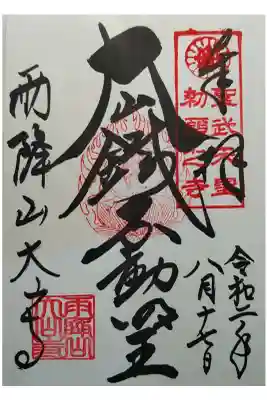 奉拝
聖武天皇
勅願之寺
令和二年
八月十七日
大山鐵不動明王
雨降山大山寺
雨降山
大山寺